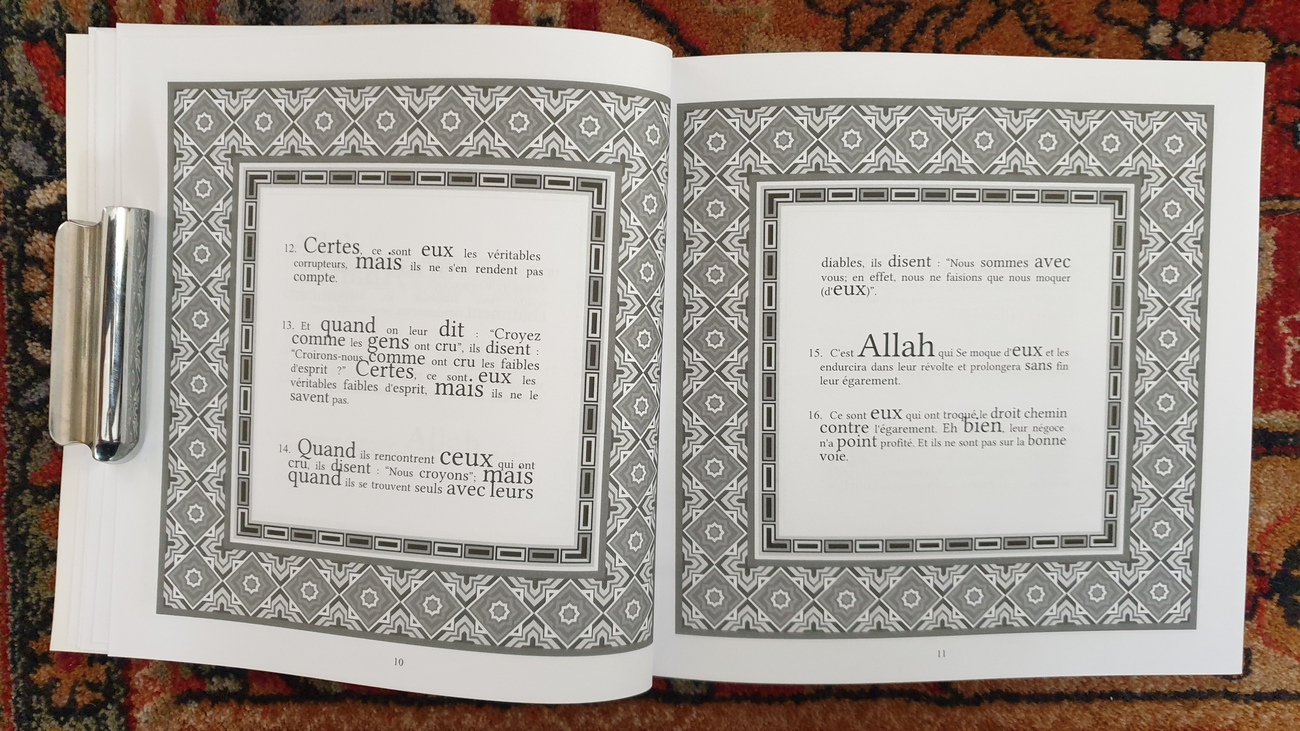 12. Certes, ce sont eux les véritables
corrupteurs, mais ils ne s'en rendent pas
compte.
13. Et quand on leur dit : “Croyez
comme les gens ont cru”, ils disent :
“Croirons-nous comme ont cru les faibles
d'esprit ?” Certes, ce sont eux les
véritables faibles d'esprit, mais ils ne le
savent pas.
14. Quand ils rencontrent ceux qui ont
cru, ils disent : “Nous croyons”; mais
quand ils se trouvent seuls avec leurs
10
diables, ils disent : “Nous sommes avec
vous; en effet, nous ne faisions que nous moquer
(d'eux)”.
15. C'est Allah qui Se moque d'eux et les
endurcira dans leur révolte et prolongera sans fin
leur égarement.
16. Ce sont eux qui ont troqué le droit chemin
contre l'égarement. Eh bien, leur négoce
n'a point profité. Et ils ne sont pas sur la bonne
voie.
11